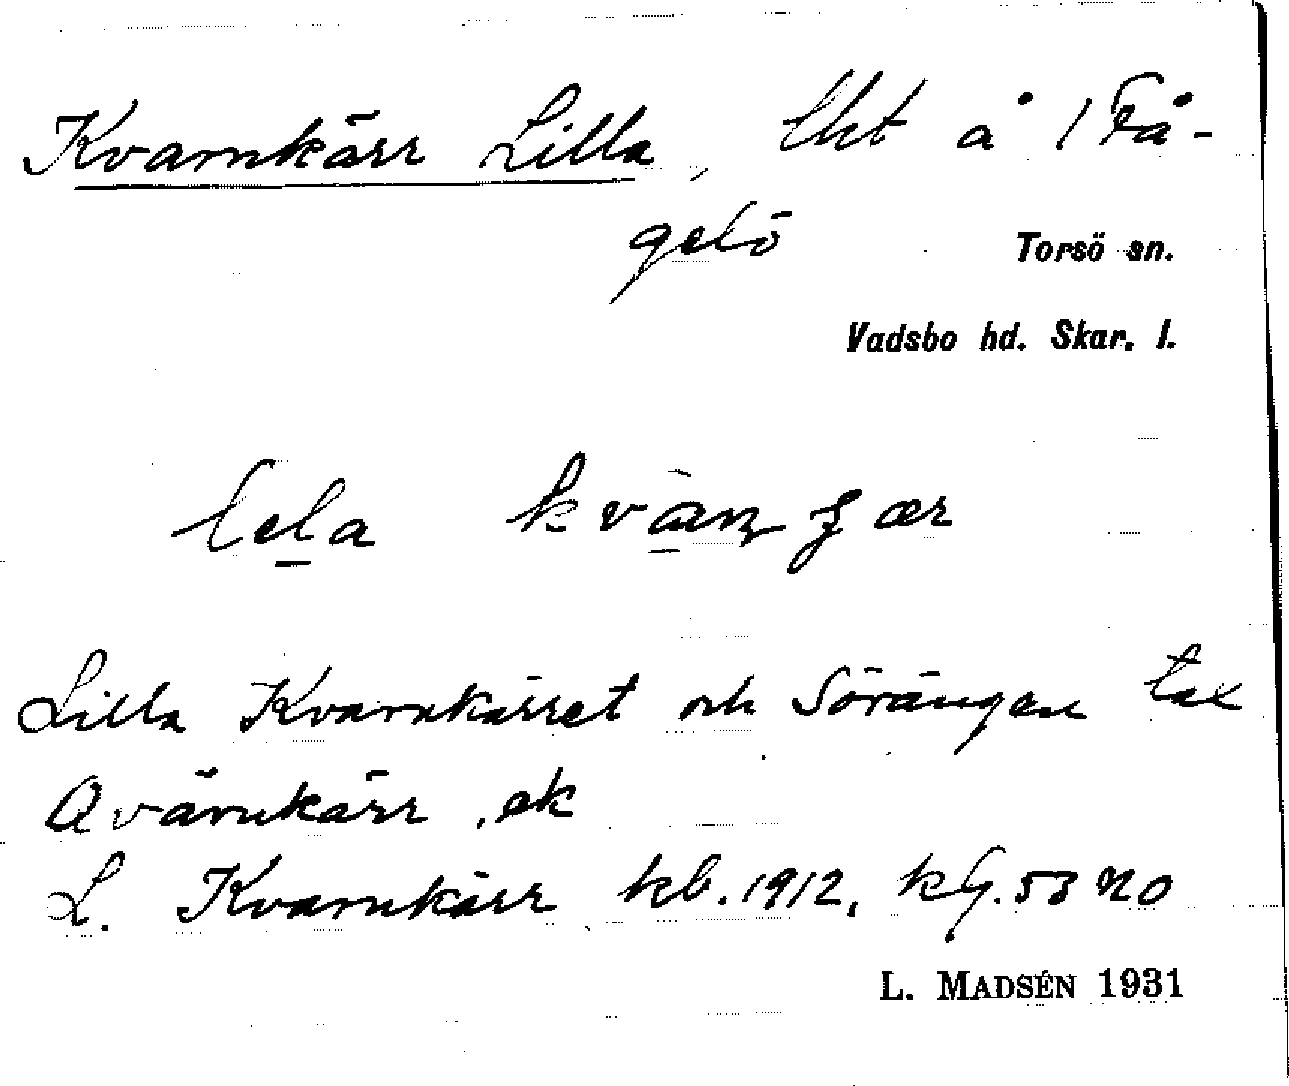 Kvarnkärr Lilla, lht å 1 Få-
gelö
Torsö sn.
Vadsbo hd. Skar. l.
Lilla Kvarnkärret och Sörängen tax
Qvärnkärr, ek
L. Kvarnkärr kb. 1912, kg. 53 NO
L. MADSÉN 1931